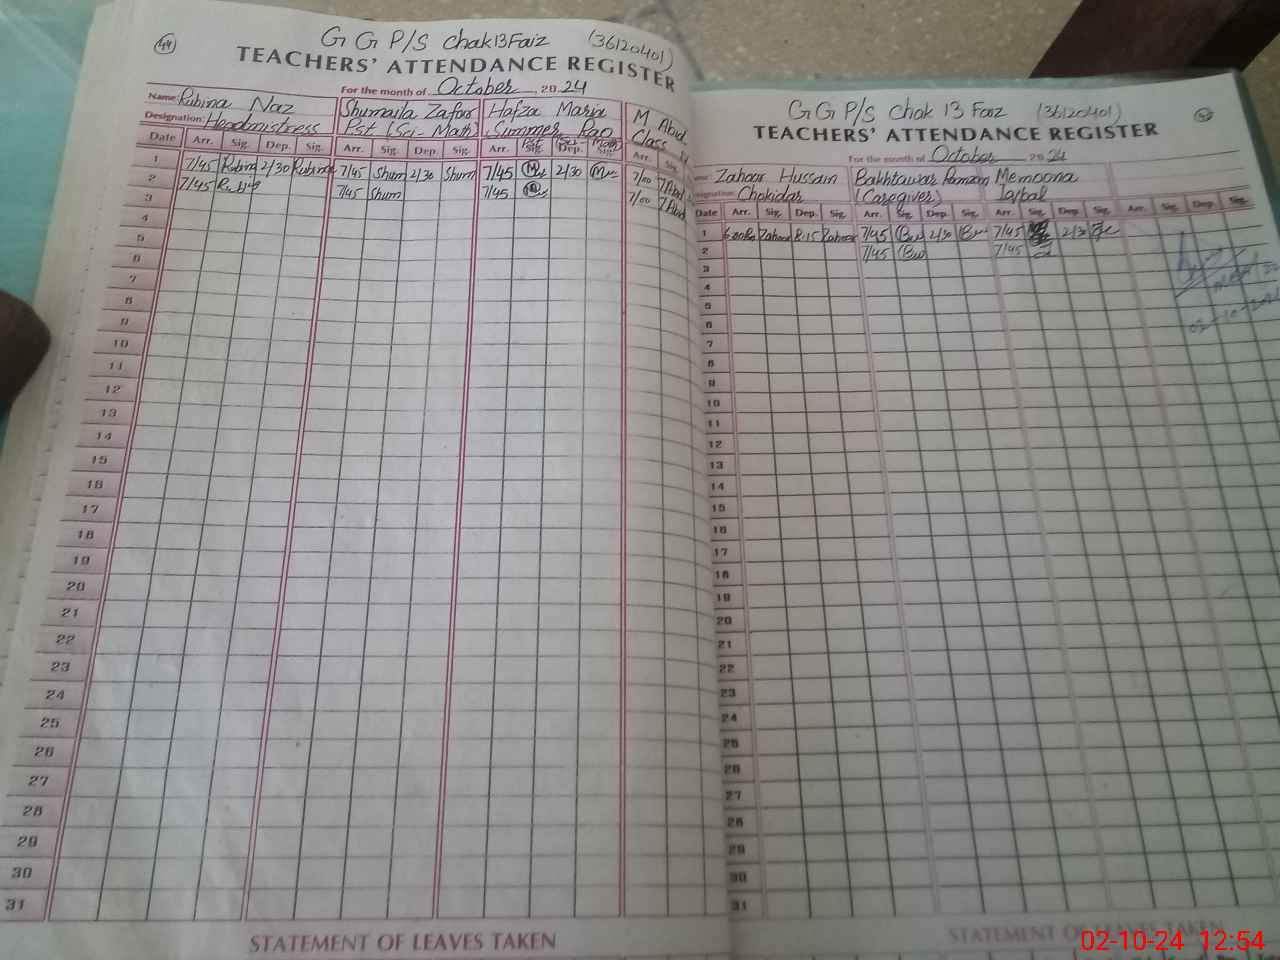 44
G G P/S Chak 13 Faiz (36120401)
TEACHERS' ATTENDANCE REGISTER
For the month of October 20 24
Name: Rubina Naz Shumaila Zafar Hafza Maria M Abid
Designation: Headmistress Pst (Sci-Math) Summer Rao Class
Date Arr. Sig. Dep. Sig. Arr. Sig. Dep. Sig. Arr. Sig. Dep. Sig. Arr. Sig.
1 7/45 Rubina 2/30 Rubina 7/45 Shum 2/30 Shum 7/45 2/30 7/00 Abid
2 7/45 Rubina 7/45 Shum 7/45 7/00 Abid
3
4
5
6
7
8
9
10
11
12
13
14
15
16
17
18
19
20
21
22
23
24
25
26
27
28
29
30
31
STATEMENT OF LEAVES TAKEN
G G P/S Chak 13 Faiz (36120401)
TEACHERS' ATTENDANCE REGISTER
For the month of October 20 24
Zahoor Hussain Bakhtawar Ramzan Memoona
Chokidar (Caregiver) Iqbal
Date Arr. Sig. Dep. Sig. Arr. Sig. Dep. Sig. Arr. Sig. Dep. Sig. Arr. Sig. Dep. Sig.
1 Zahoor 8:15 Zahoor 7/45 2/30 7/45 2/30
2 7/45 7/45
3
4
5
6
7
8
9
10
11
12
13
14
15
16
17
18
19
20
21
22
23
24
25
26
27
28
29
30
31
STATEMENT OF LEAVES TAKEN
02-10-24 12:54